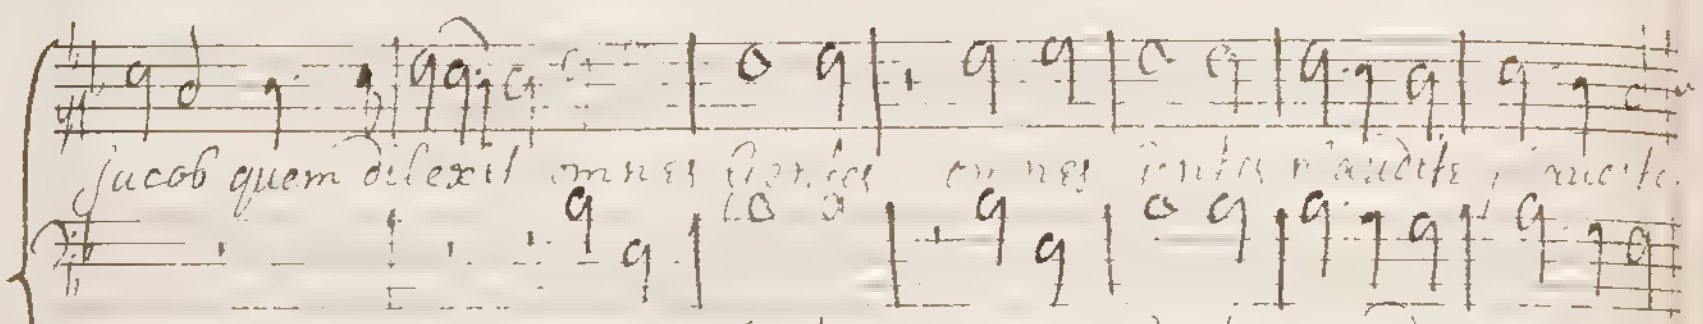 jacob quem dilexit omnes gentes omnes gentes plaudite